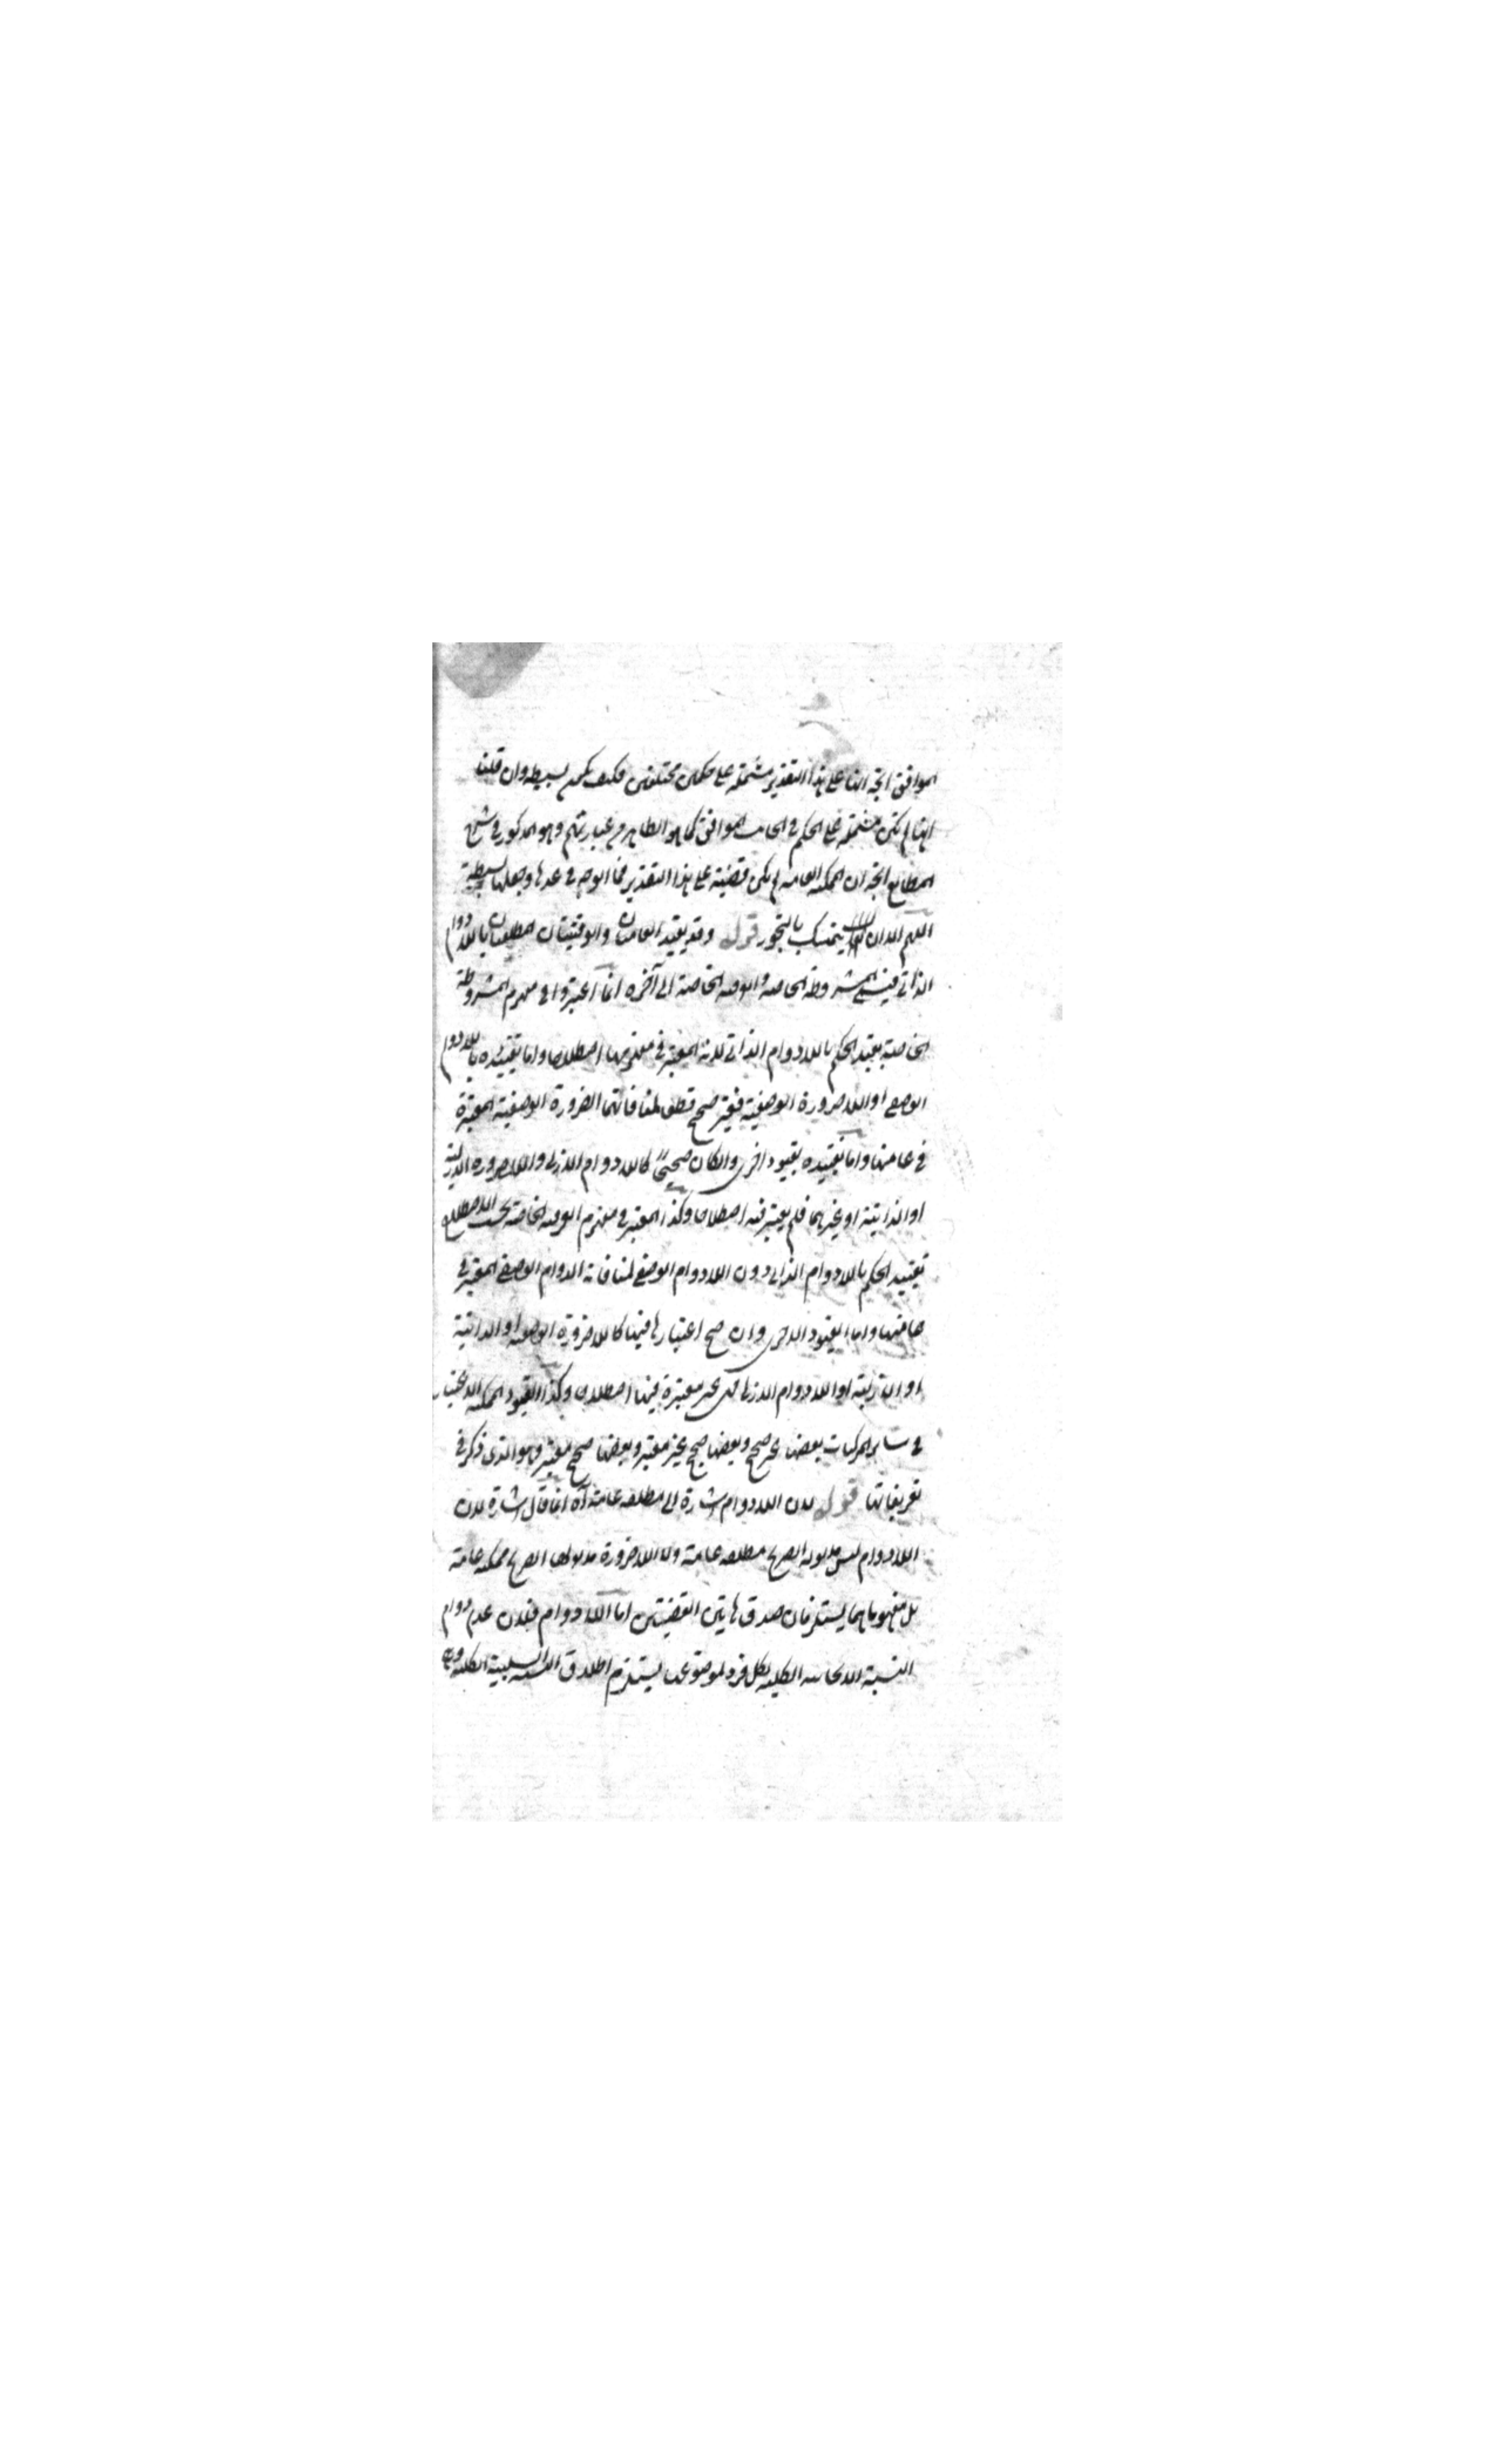 الموافق اتجه انها على هذا التقدير مشتملة على حكمين مختلفين فكيف يكون بسيطة وان قلنا
انها لم تكن مشتملة على الحكم في الجانب الموافق كما هو الظاهر من عبارتهم وهو المذكور في شرح
المطالع اتجه ان الممكنة العامة لم يكن قضية على هذا التقدير فما الوجه في عدها وجعلها بسيطة
اللهم الا ان يتمسك بالتجوز قوله وقد يقيد العامتان والوقتيتان المطلقتان باللادوام
الذاتي فيسمى المشروطة الخاصة والعرفية الخاصة الى آخره انما اعتبروا في مفهوم المشروطة
الخاصة تقييد الحكم باللادوام الذاتي لانه المعتبر في مفهومها اصطلاحا واما تقييده باللادوام
الوصفي او اللاضرورة الوصفية فغير صحيح قطعا لمنافاتهما الضرورة الوصفية المعتبرة
في عامتها واما تقييده بقيود اخرى وان كان صحيحا كاللادوام الازلي واللاضرورة الازلية
او الذاتية او غيرهما فلم يعتبر فيه اصطلاحا وكذا المعتبر في مفهوم العرفية الخاصة بحسب الاصطلاح
تقييد الحكم باللادوام الذاتي دون اللادوام الوصفي لمنافاته الدوام الوصفي المعتبر في
عامتها واما القيود الاخرى وان صح اعتبارها فيها كاللاضرورة الوصفية او الذاتية
او الازلية او اللادوام الازلي فهي غير معتبرة فيها اصطلاحا وكذا القيود الممكنة الاعتبار
في سائر المركبات بعضها غير صحيح وبعضها صحيح غير معتبر وبعضها صحيح معتبر وهو الذي ذكر في
تعريفاتها قوله لان اللادوام اشارة الى مطلقة عامة آه انما قال اشارة لان
اللادوام ليس مدلوله الصريح مطلقة عامة ولا اللاضرورة مدلولها الصريح ممكنة عامة
بل مفهوماهما يستلزمان صدق هاتين القضيتين اما اللادوام فلان عدم دوام
النسبة الايجابية الكلية لكل فرد لموضوعه يستلزم اطلاق النسبة السلبية الكلية